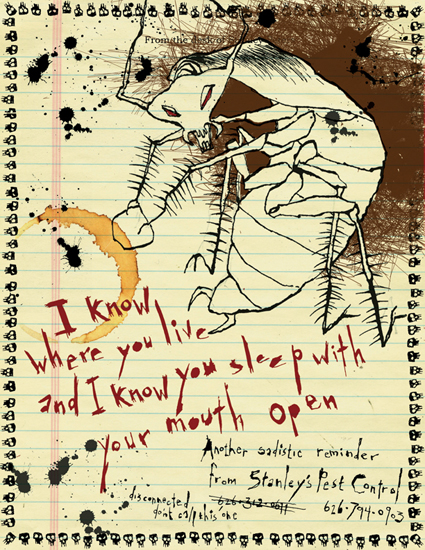 From the desk of
I know
where you live
and I know you sleep with
your mouth open
Another sadistic reminder
from Stanley's Pest Control
disconnected
don't call this one
626-794-0903